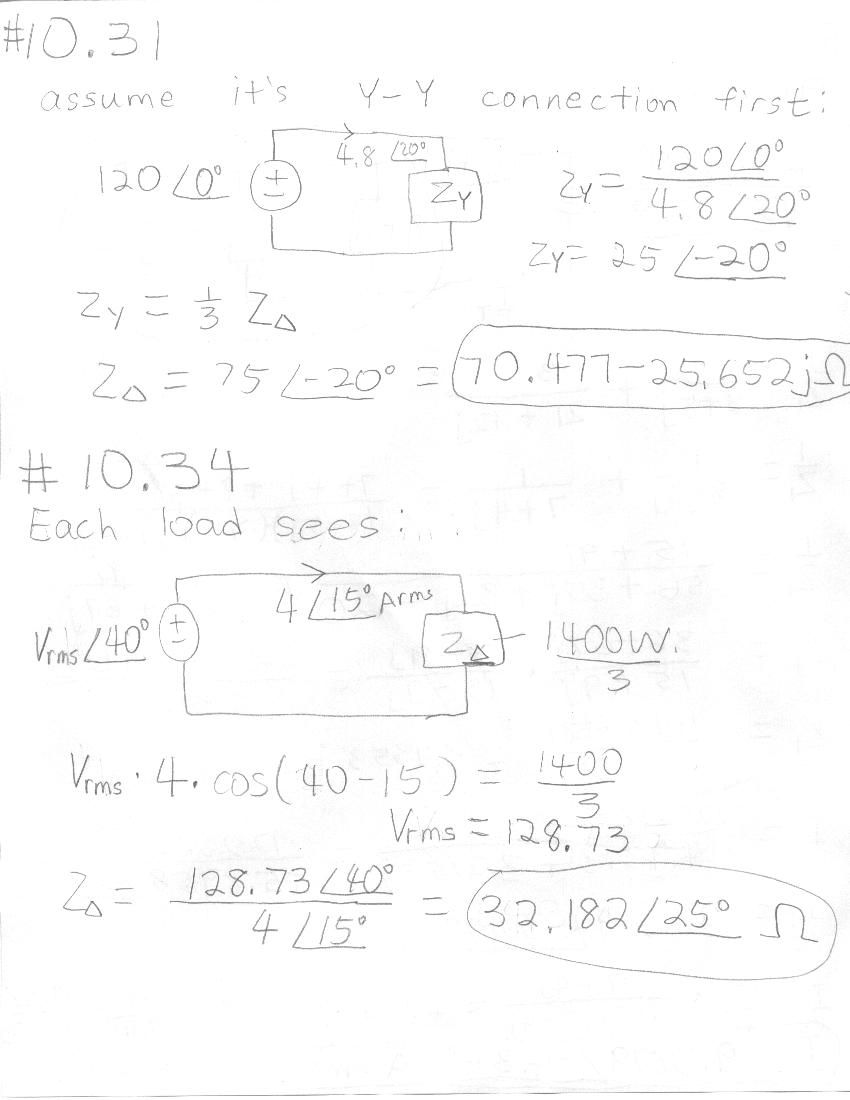 #10.31
assume it's Y-Y connection first:
120∠0° ± 4.8∠20° Z_Y
Z_Y = 120∠0° / 4.8∠20°
Z_Y = 25∠-20°
Z_Y = 1/3 Z_Δ
Z_Δ = 75∠-20° = 70.477-25.652jΩ
#10.34
Each load sees:...
Vrms∠40° ± 4∠15° Arms Z_Δ - 1400W. / 3
Vrms · 4 · cos(40-15) = 1400 / 3
Vrms = 128.73
Z_Δ = 128.73∠40° / 4∠15° = 32.182∠25° Ω